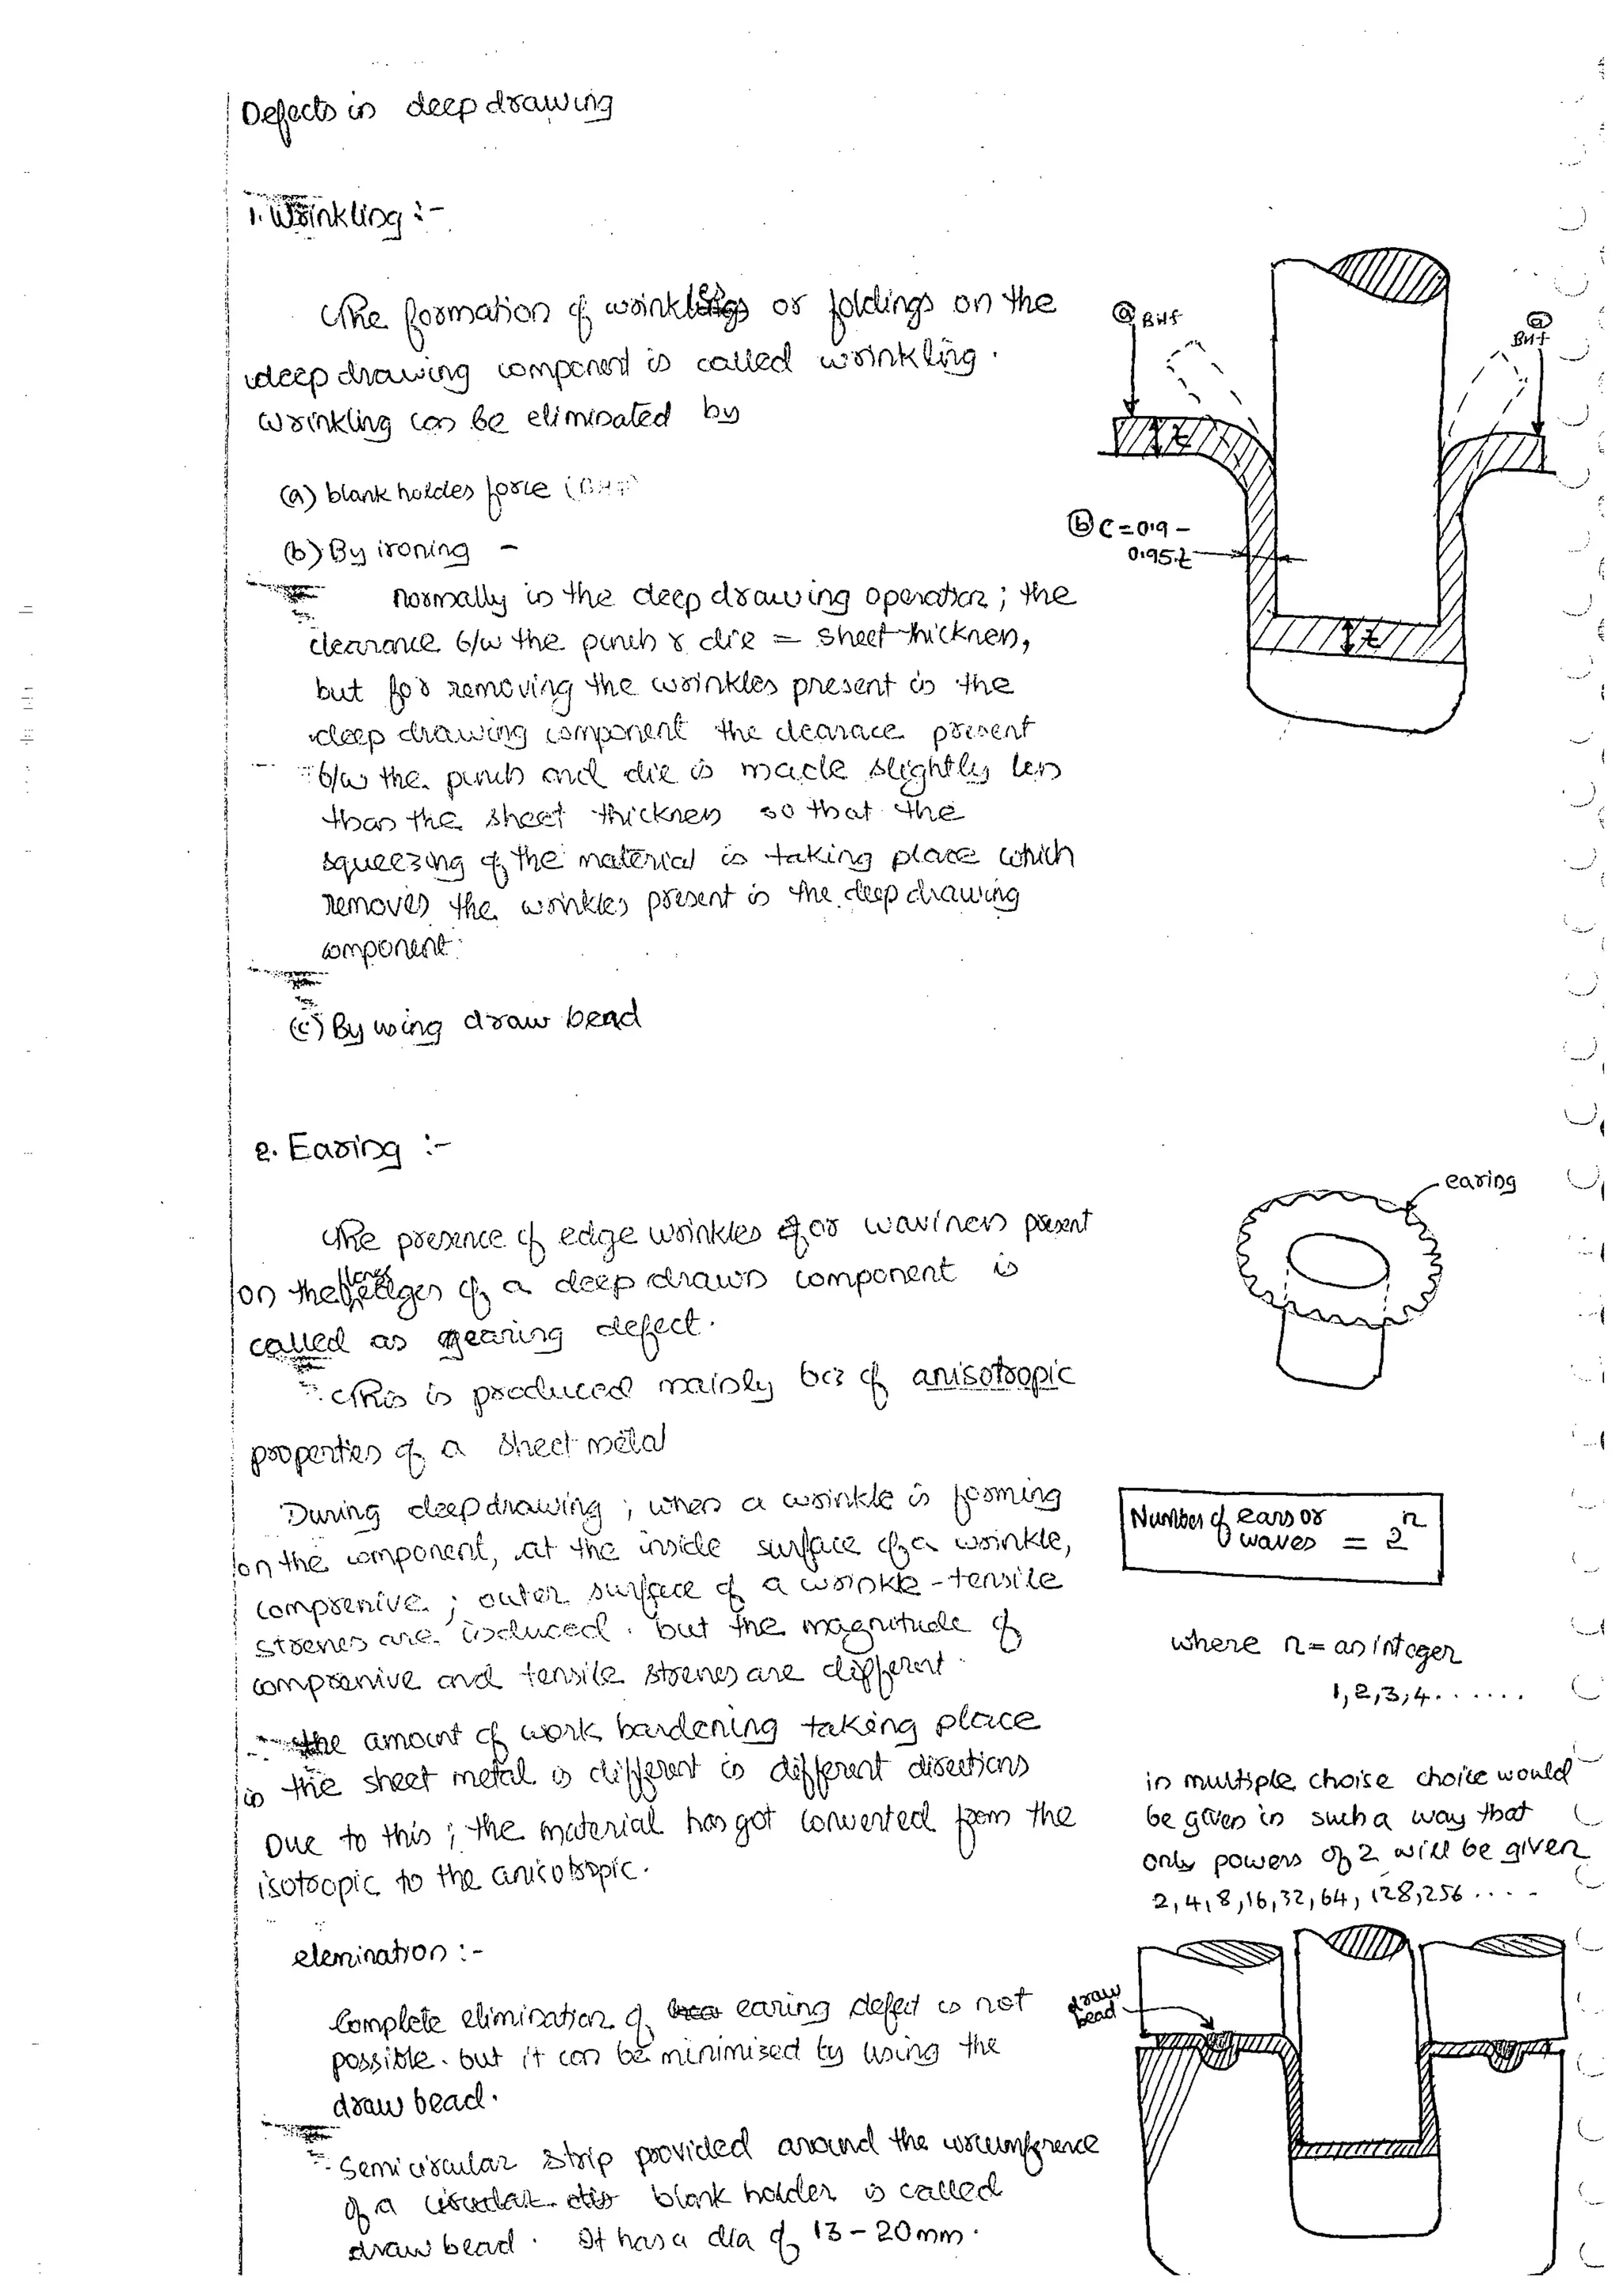 Defects in deep drawing
1. Wrinkling :-
The formation of wrinkles or foldings on the
deep drawing component is called wrinkling.
wrinkling can be eliminated by
(a) blank holder force (BHF)
(b) By ironing -
normally in the deep drawing operation; the
clearance b/w the punch & die = sheet thickness,
but for removing the wrinkles present in the
deep drawing component the clearace present
b/w the punch and die is made slightly less
than the sheet thickness so that the
squeezing of the material is taking place which
removes the wrinkles present in the deep drawing
component.
(c) By using draw bead
@ BHf
@
BHf
t
ⓑ C = 0.9 -
0.95t
t
2. Earing :-
The presence of edge wrinkles or waviness present
on the flange edges of a deep drawn component is
called as earing defect.
This is produced mainly bcz of anisotropic
properties of a sheet metal
During deep drawing; when a wrinkle is forming
on the component, at the inside surface of a wrinkle,
compressive; outer surface of a wrinkle - tensile
stresses are induced. but the magnitude of
compressive and tensile stresses are different.
the amount of work hardening taking place
in the sheet metal is different in different directions
Due to this; the material has got converted from the
isotropic to the anisotropic.
earing
Number of ears or
waves = 2^n
where n = an integer
1,2,3,4......
in multiple choise choice would
be given in such a way that
only powers of 2 will be given
2,4,8,16,32,64,128,256....
elemination :-
Complete elimination of earing defect is not
possible. but it can be minimised by using the
draw bead.
Semi circular strip provided around the circumference
of a blank holder is called
draw bead. It has a dia of 13-20mm.
draw
bead